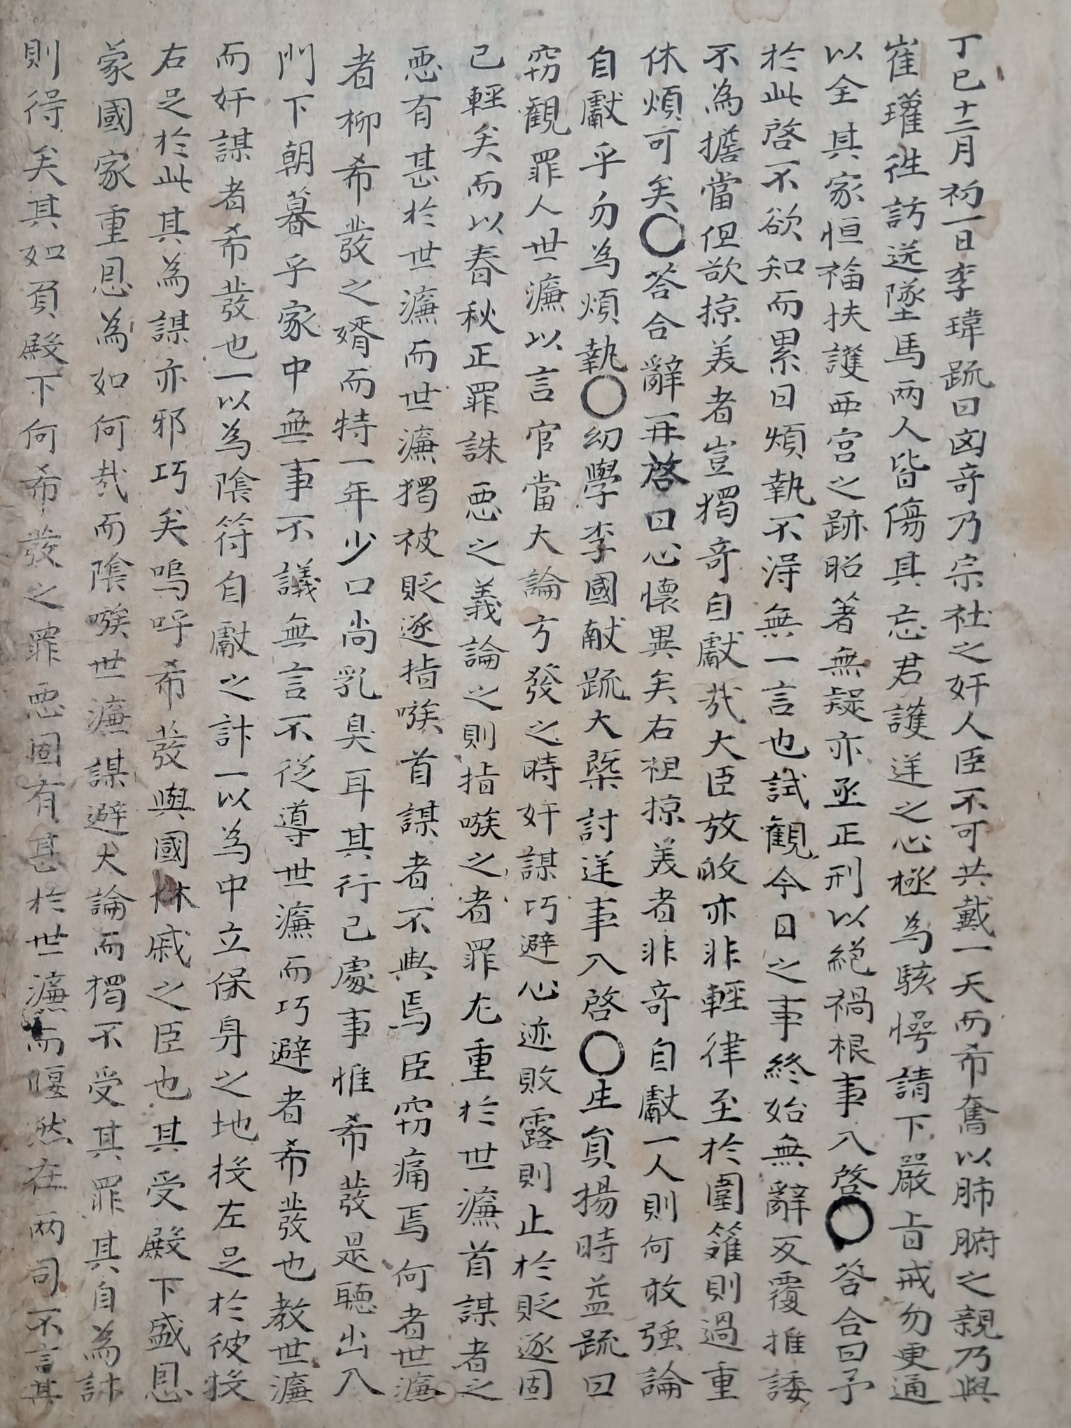 丁巳十二月初一日李瑋疏曰凶奇乃宗社之奸人臣不可共戴一天而希奮以肺腑之親乃與
崔瓘徃訪送墜馬两人皆傷其忘君護逆之心極為駭愕請下嚴旨戒勿更通
以全其家恒福扶護西宮之跡昭著無疑亦亟正刑以絕禍根事入啓〇答合曰予
於此啓不欲知而累日煩執不淂無一言也試觀今日之事終始無辭反覆推諉
不為擔當但欲掠美者豈獨奇自獻㢤大臣放㱕亦非輕律至於圍籬則過重
休煩可矣〇答合辭再啓曰心懷異矣右袒掠美者非奇自獻一人則何敢强論
自獻乎勿為煩執〇幼學李國献疏大槩討逆事入啓〇生員揚時益疏曰
窃觀罪人世濂以言官當大論方發之時奸謀巧避心迹敗露則止於貶逐固
已輕矣而以春秋正罪誅惡之義論之則指嗾之者罪尤重於世濂首謀者之
惡有甚於世濂而世濂獨被貶逐指嗾首謀者不與焉臣窃痛焉何者世濂
者柳希發之婿而特一年少口尚乳臭耳其行己處事惟希發是聽出入
門下朝暮乎家中無事不議無言不從導世濂而巧避者希發也教世濂
而奸謀者希發也一以為陰符自獻之計一以為中立保身之地投左足於彼投
右足於此其為謀亦邪巧矣嗚呼希發與國休戚之臣也其受殿下盛恩
蒙國家重恩為如何㢤而陰嗾世濂謀避大論而獨不受其罪其自為計
則得矣其如負殿下何希發之罪惡固有甚於世濂而偃然在两司不言其